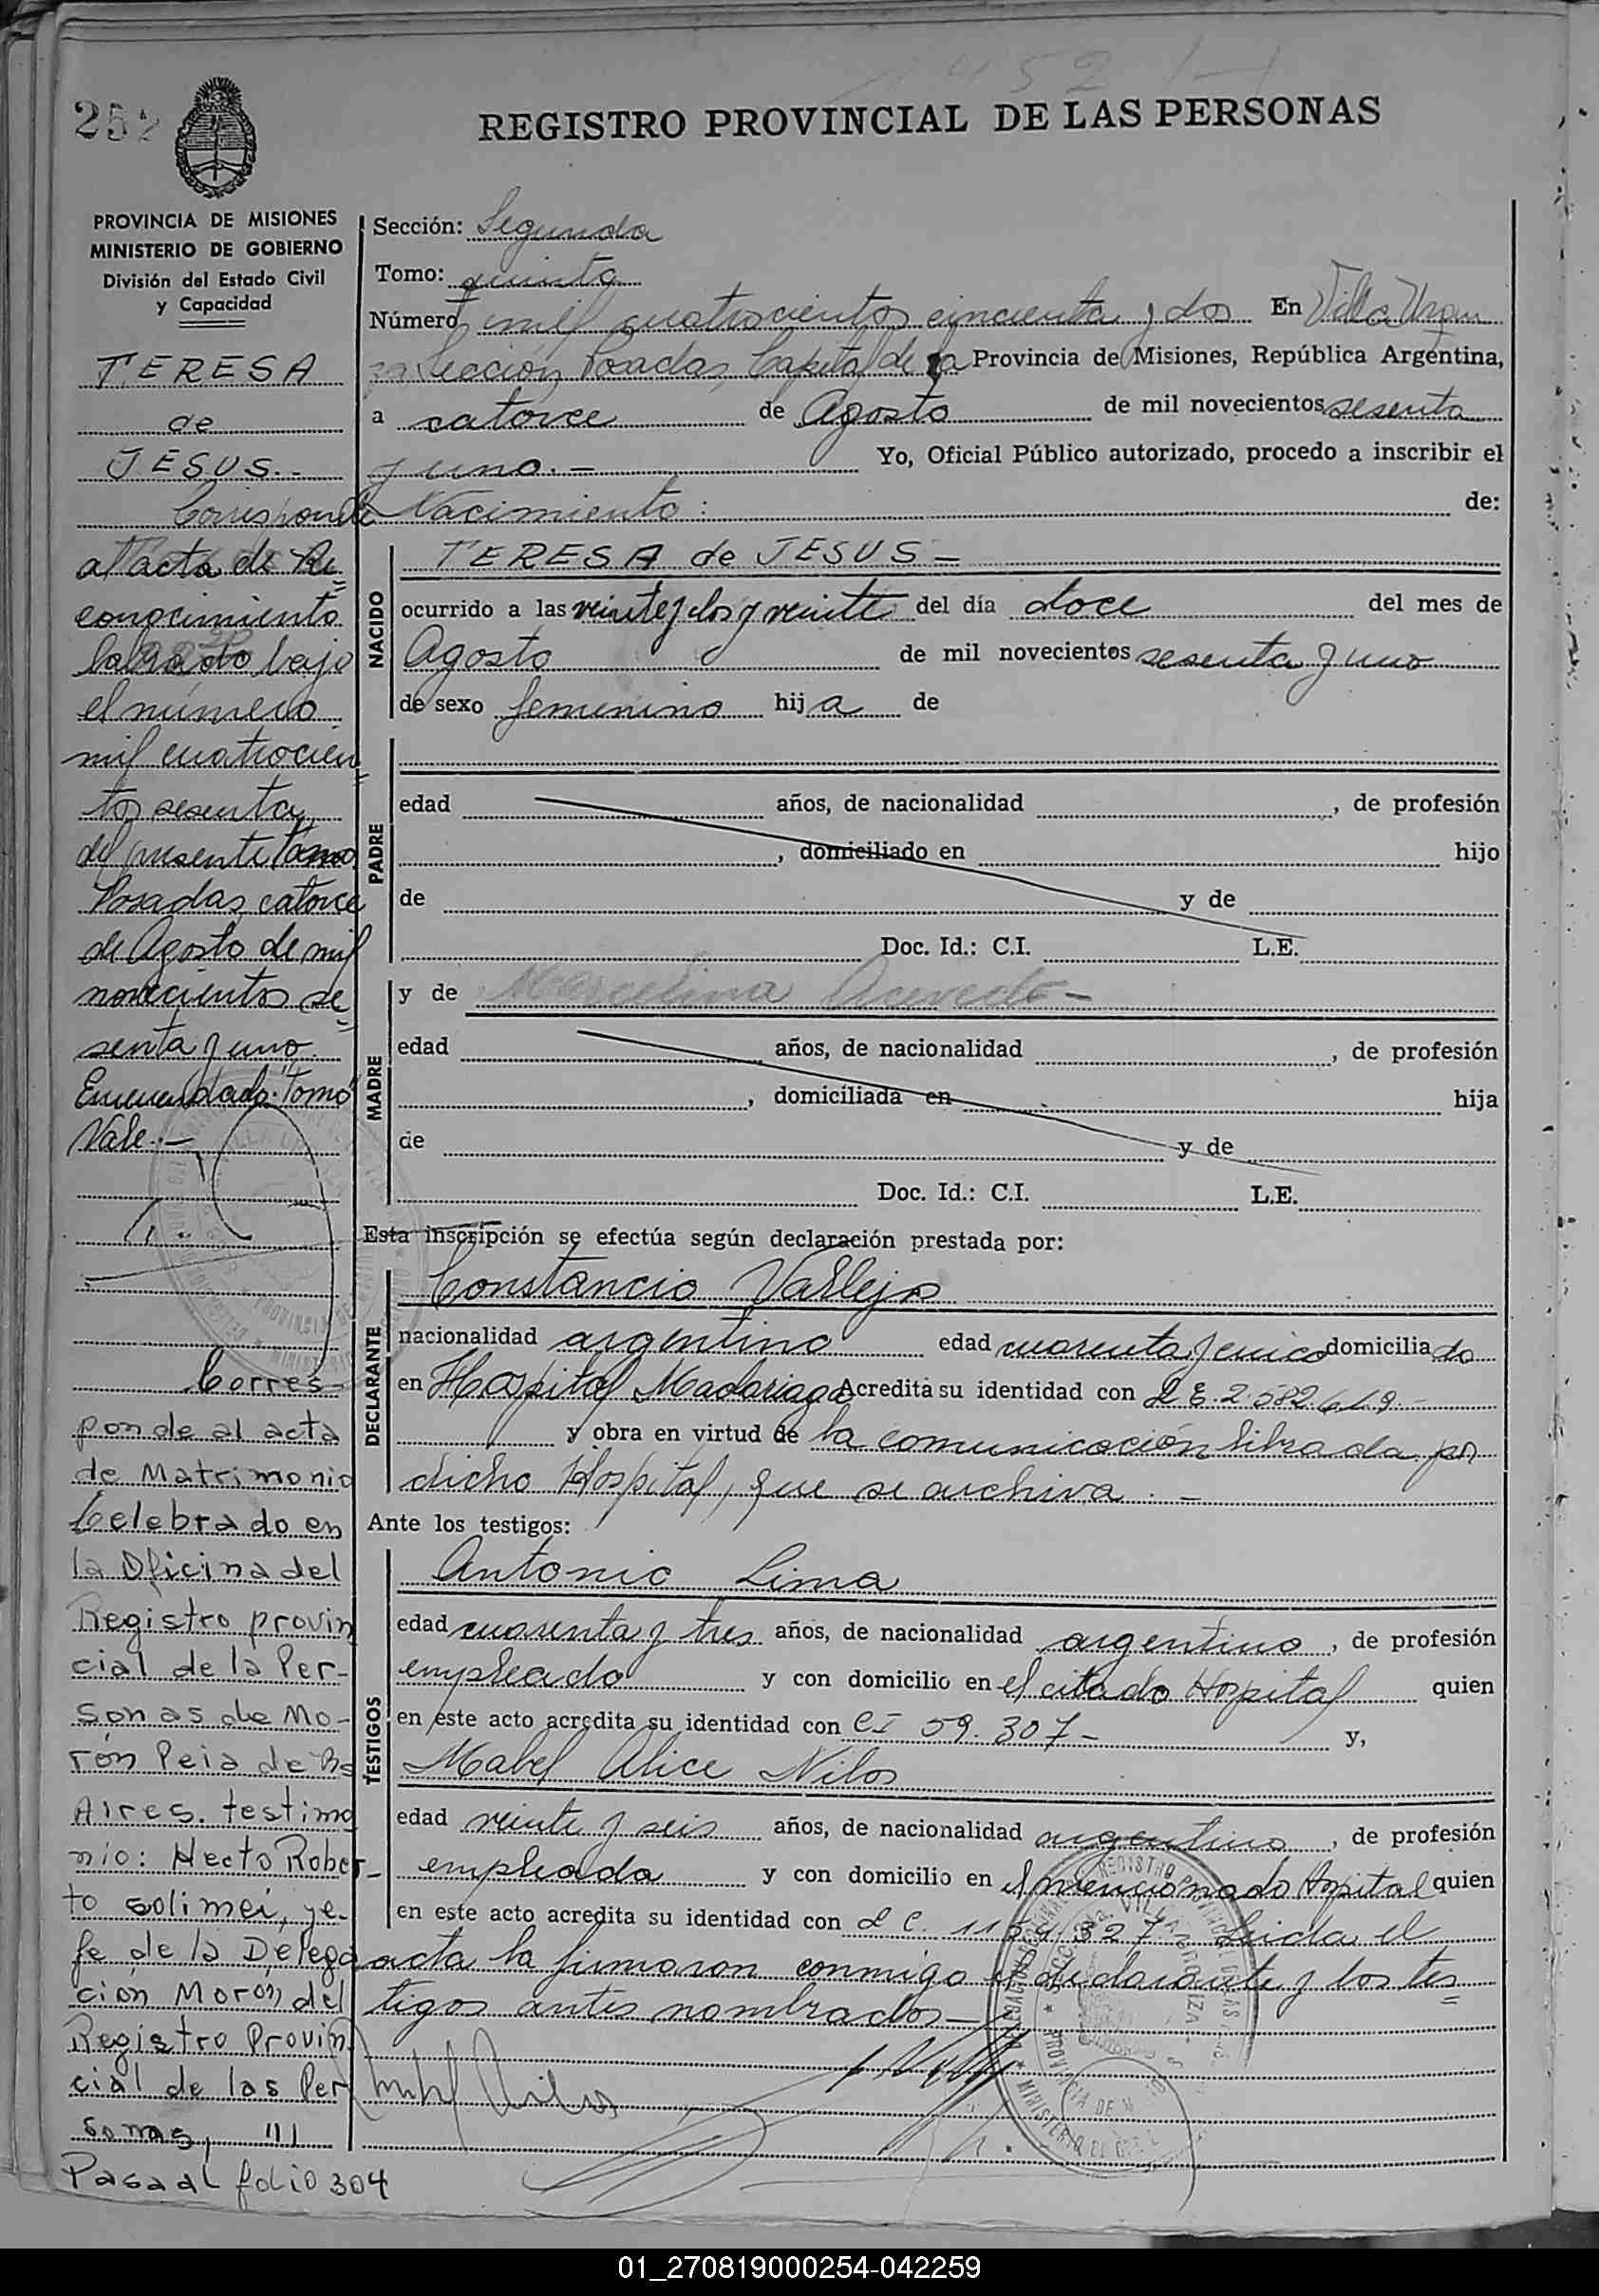 252
REGISTRO PROVINCIAL DE LAS PERSONAS
PROVINCIA DE MISIONES
MINISTERIO DE GOBIERNO
División del Estado Civil
y Capacidad
TERESA
de
JESUS.-
Corresponde
al acta de Re=
conocimiento
labrado bajo
el número
mil cuatrocien=
tos sesenta
del presente Tomo
Posadas, catorce
de Agosto de mil
novecientos se=
senta y uno.
Enmendado: Tomo
Vale.-
Corres-
ponde al acta
de Matrimonio
Celebrado en
la Oficina del
Registro provin
cial de la Per-
sonas de Mo-
rón Pcia de Bs
Aires. testimo
nio: Hecto Rober-
to Solimei, je-
fe de la Delega
ción Morón del
Registro Provin
cial de las Per
sonas, 111
Pasa al folio 304
Sección: Segunda
Tomo: quinto
Número mil cuatrocientos cincuenta y dos En Villa Urqui
za Sección Posadas, Capital de la Provincia de Misiones, República Argentina,
a catorce de Agosto de mil novecientos sesenta
y uno.- Yo, Oficial Público autorizado, procedo a inscribir el
Nacimiento: de:
NACIDO
TERESA de JESUS-
ocurrido a las veinte y dos y veinte del día doce del mes de
Agosto de mil novecientos sesenta y uno
de sexo femenino hija de
PADRE
edad años, de nacionalidad , de profesión
, domiciliado en hijo
de y de
Doc. Id.: C.I. L.E.
MADRE
y de Marcelina Acevedo-
edad años, de nacionalidad , de profesión
, domiciliada en hija
de y de
Doc. Id.: C.I. L.E.
Esta inscripción se efectúa según declaración prestada por:
DECLARANTE
Constancio Vallejos
nacionalidad argentino edad cuarenta y cinco domiciliado
en Hospital Madariaga Acredita su identidad con L E. 2.582.619.-
y obra en virtud de la comunicación librada por
dicho Hospital, que se archiva.-
Ante los testigos:
TESTIGOS
Antonio Lima
edad cuarenta y tres años, de nacionalidad argentino, de profesión
empleado y con domicilio en el citado Hospital quien
en este acto acredita su identidad con CI 59.307- y,
Mabel Alice Nilos
edad veinte y seis años, de nacionalidad argentina, de profesión
empleada y con domicilio en el mencionado Hospital quien
en este acto acredita su identidad con L C. Leida el
acta la firmaron conmigo el declarante y los tes=
tigos antes nombrados-
01_270819000254-042259